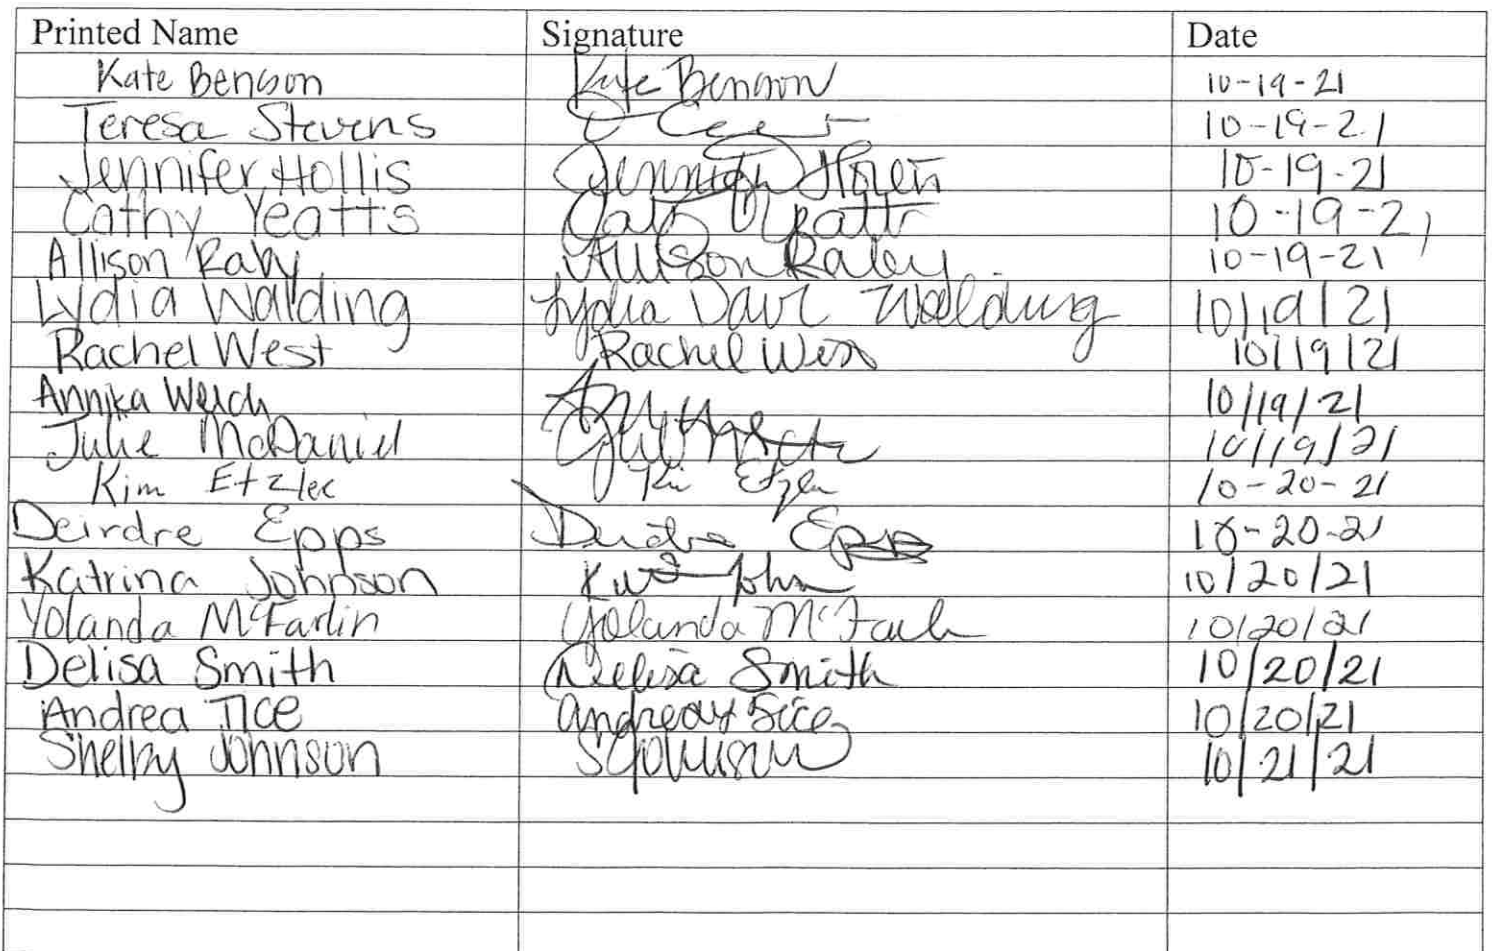 Printed Name Signature Date
Kate Benson Kate Benson 10-19-21
Teresa Stevens 10-19-21
Jennifer Hollis Jennifer 10-19-21
Cathy Yeatts 10-19-21
Allison Raby Allison Raby 10-19-21
Lydia Walding Lydia Walding 10/19/21
Rachel West Rachel West 10/19/21
Annika Welch 10/19/21
Julie McDaniel 10/19/21
Kim Etzler Kim Etzler 10-20-21
Deirdre Epps Deirdre Epps 10-20-21
Katrina Johnson 10/20/21
Yolanda McFarlin Yolanda McFarlin 10/20/21
Delisa Smith Delisa Smith 10/20/21
Andrea Tice Andrea Tice 10/20/21
Shelby Johnson SJohnson 10/21/21